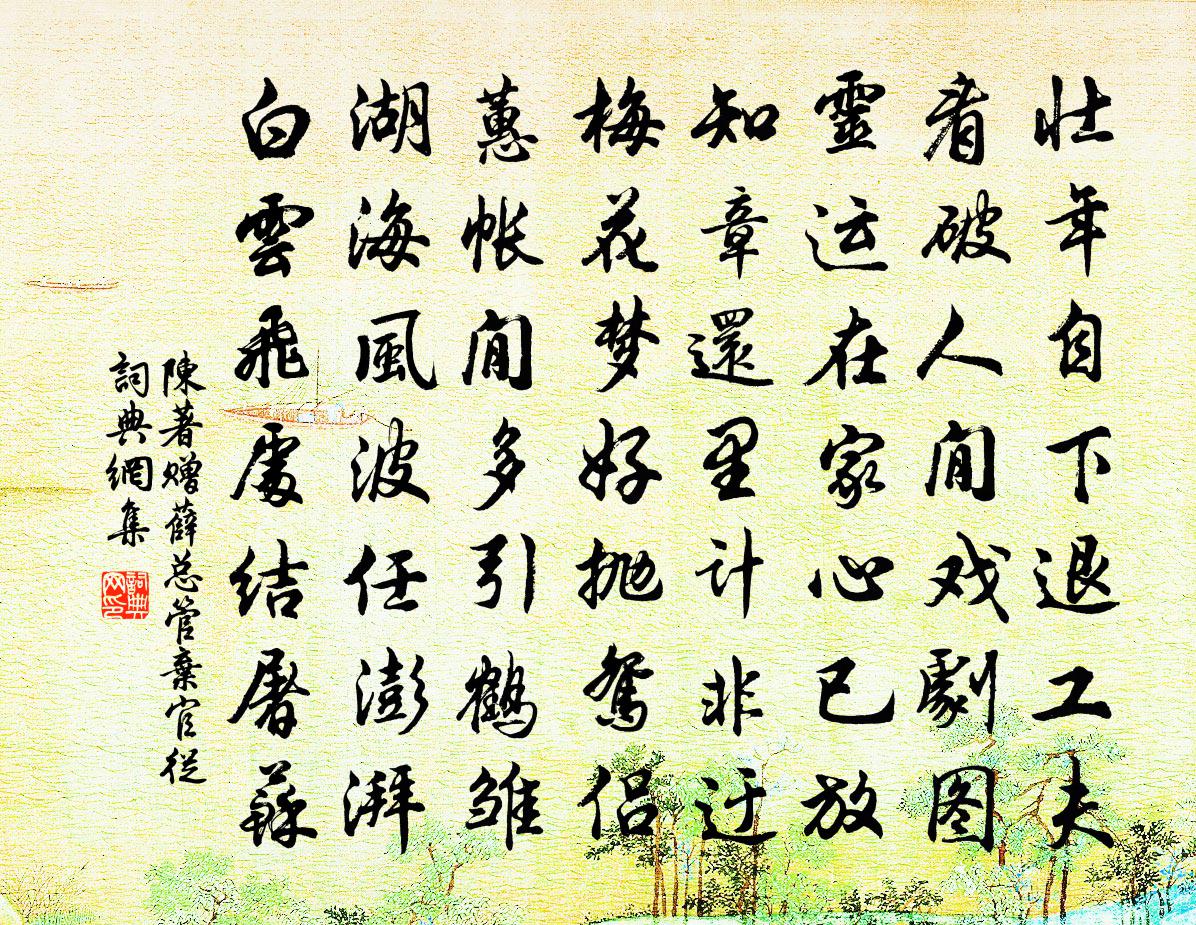 壮年自下退工夫
看破人间戏劇图
靈运在家心已放
知章還里计非迂
梅花梦好抛鸳侣
蕙帐间多引鹤雏
湖海風波任澎湃
白雲飛處结屠蘇
陳著赠薛总管棄官從
詞典網集
詞典网印